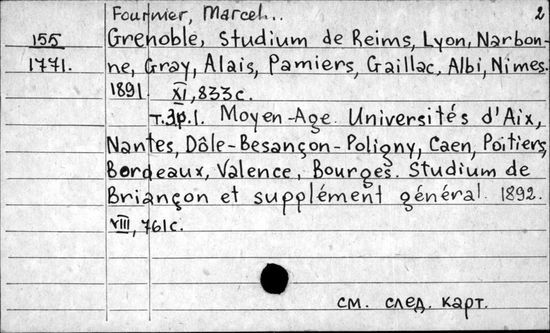 Fournier, Marcel... 2
155 Grenoble, Studium de Reims, Lyon, Narbon-
1771. ne, Gray, Alais, Pamiers, Gaillac, Albi, Nimes.
1891. XI, 833 c.
т. 3 p. 1. Moyen-Age. Universités d'Aix,
Nantes, Dôle-Besançon-Poligny, Caen, Poitiers,
Bordeaux, Valence, Bourges. Studium de
Briançon et supplément général. 1892.
VIII, 761c.
см. след. карт.